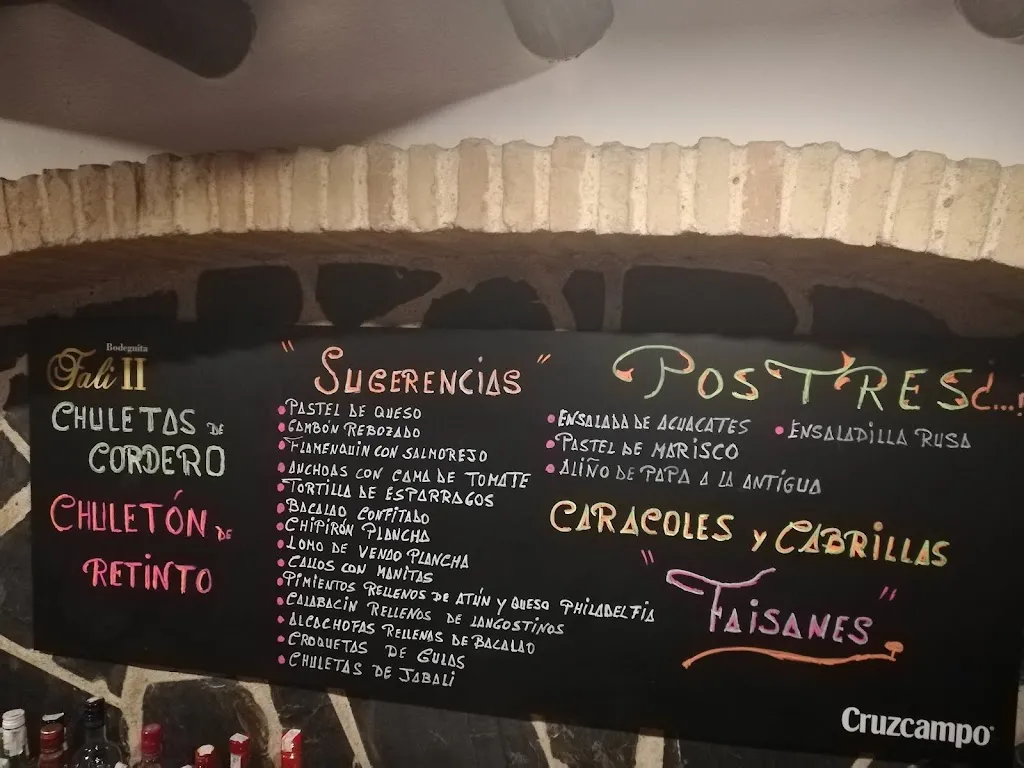 Bodeguita
Fali II
CHULETAS DE
CORDERO
CHULETÓN DE
RETINTO
"SUGERENCIAS"
• PASTEL DE QUESO
• GAMBÓN REBOZADO
• FLAMENQUIN CON SALMOREJO
• ANCHOAS CON CAMA DE TOMATE
• TORTILLA DE ESPARRAGOS
• BACALAO CONFITADO
• CHIPIRÓN PLANCHA
• LOMO DE VENAO PLANCHA
• CALLOS CON MANITAS
• PIMIENTOS RELLENOS DE ATÚN Y QUESO PHILADELFIA
• CALABACIN RELLENOS DE LANGOSTINOS
• ALCACHOFAS RELLENAS DE BACALAO
• CROQUETAS DE GULAS
• CHULETAS DE JABALI
POSTRES
• ENSALADA DE AGUACATES
• ENSALADILLA RUSA
• PASTEL DE MARISCO
• ALIÑO DE PAPA A LA ANTÍGUA
CARACOLES Y CABRILLAS
"FAISANES"
Cruzcampo